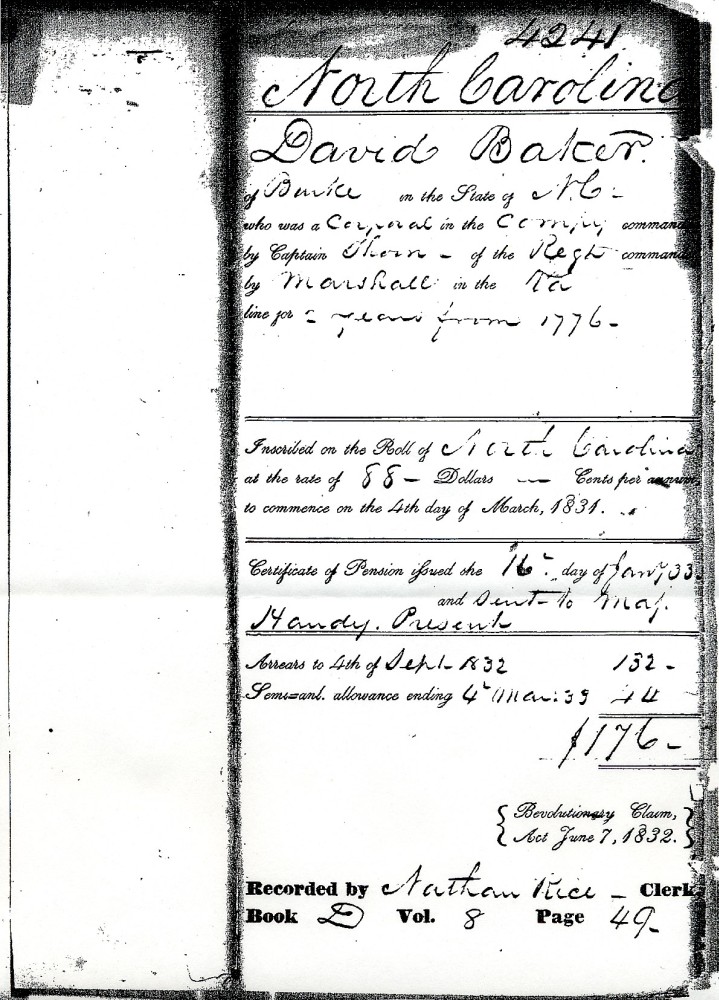 4241
North Carolina
David Baker.
of Burke in the State of N.C -
who was a Corporal in the Compy command
by Captain Thorn - of the Regt command
by Marshall in the Va
line for 2 years from 1776 -
Inscribed on the Roll of North Carolina
at the rate of 88 - Dollars — Cents per annum,
to commence on the 4th day of March, 1831.
Certificate of Pension issued the 16th day of Jany 33.
and Sent to Maj.
Handy. Present
Arrears to 4th of Sept 1832 132 -
Semi-anl. allowance ending 4 Mar: 33 44
$176 -
{ Revolutionary Claim, }
{ Act June 7, 1832. }
Recorded by Nathan Rice - Clerk,
Book D Vol. 8 Page 49 -